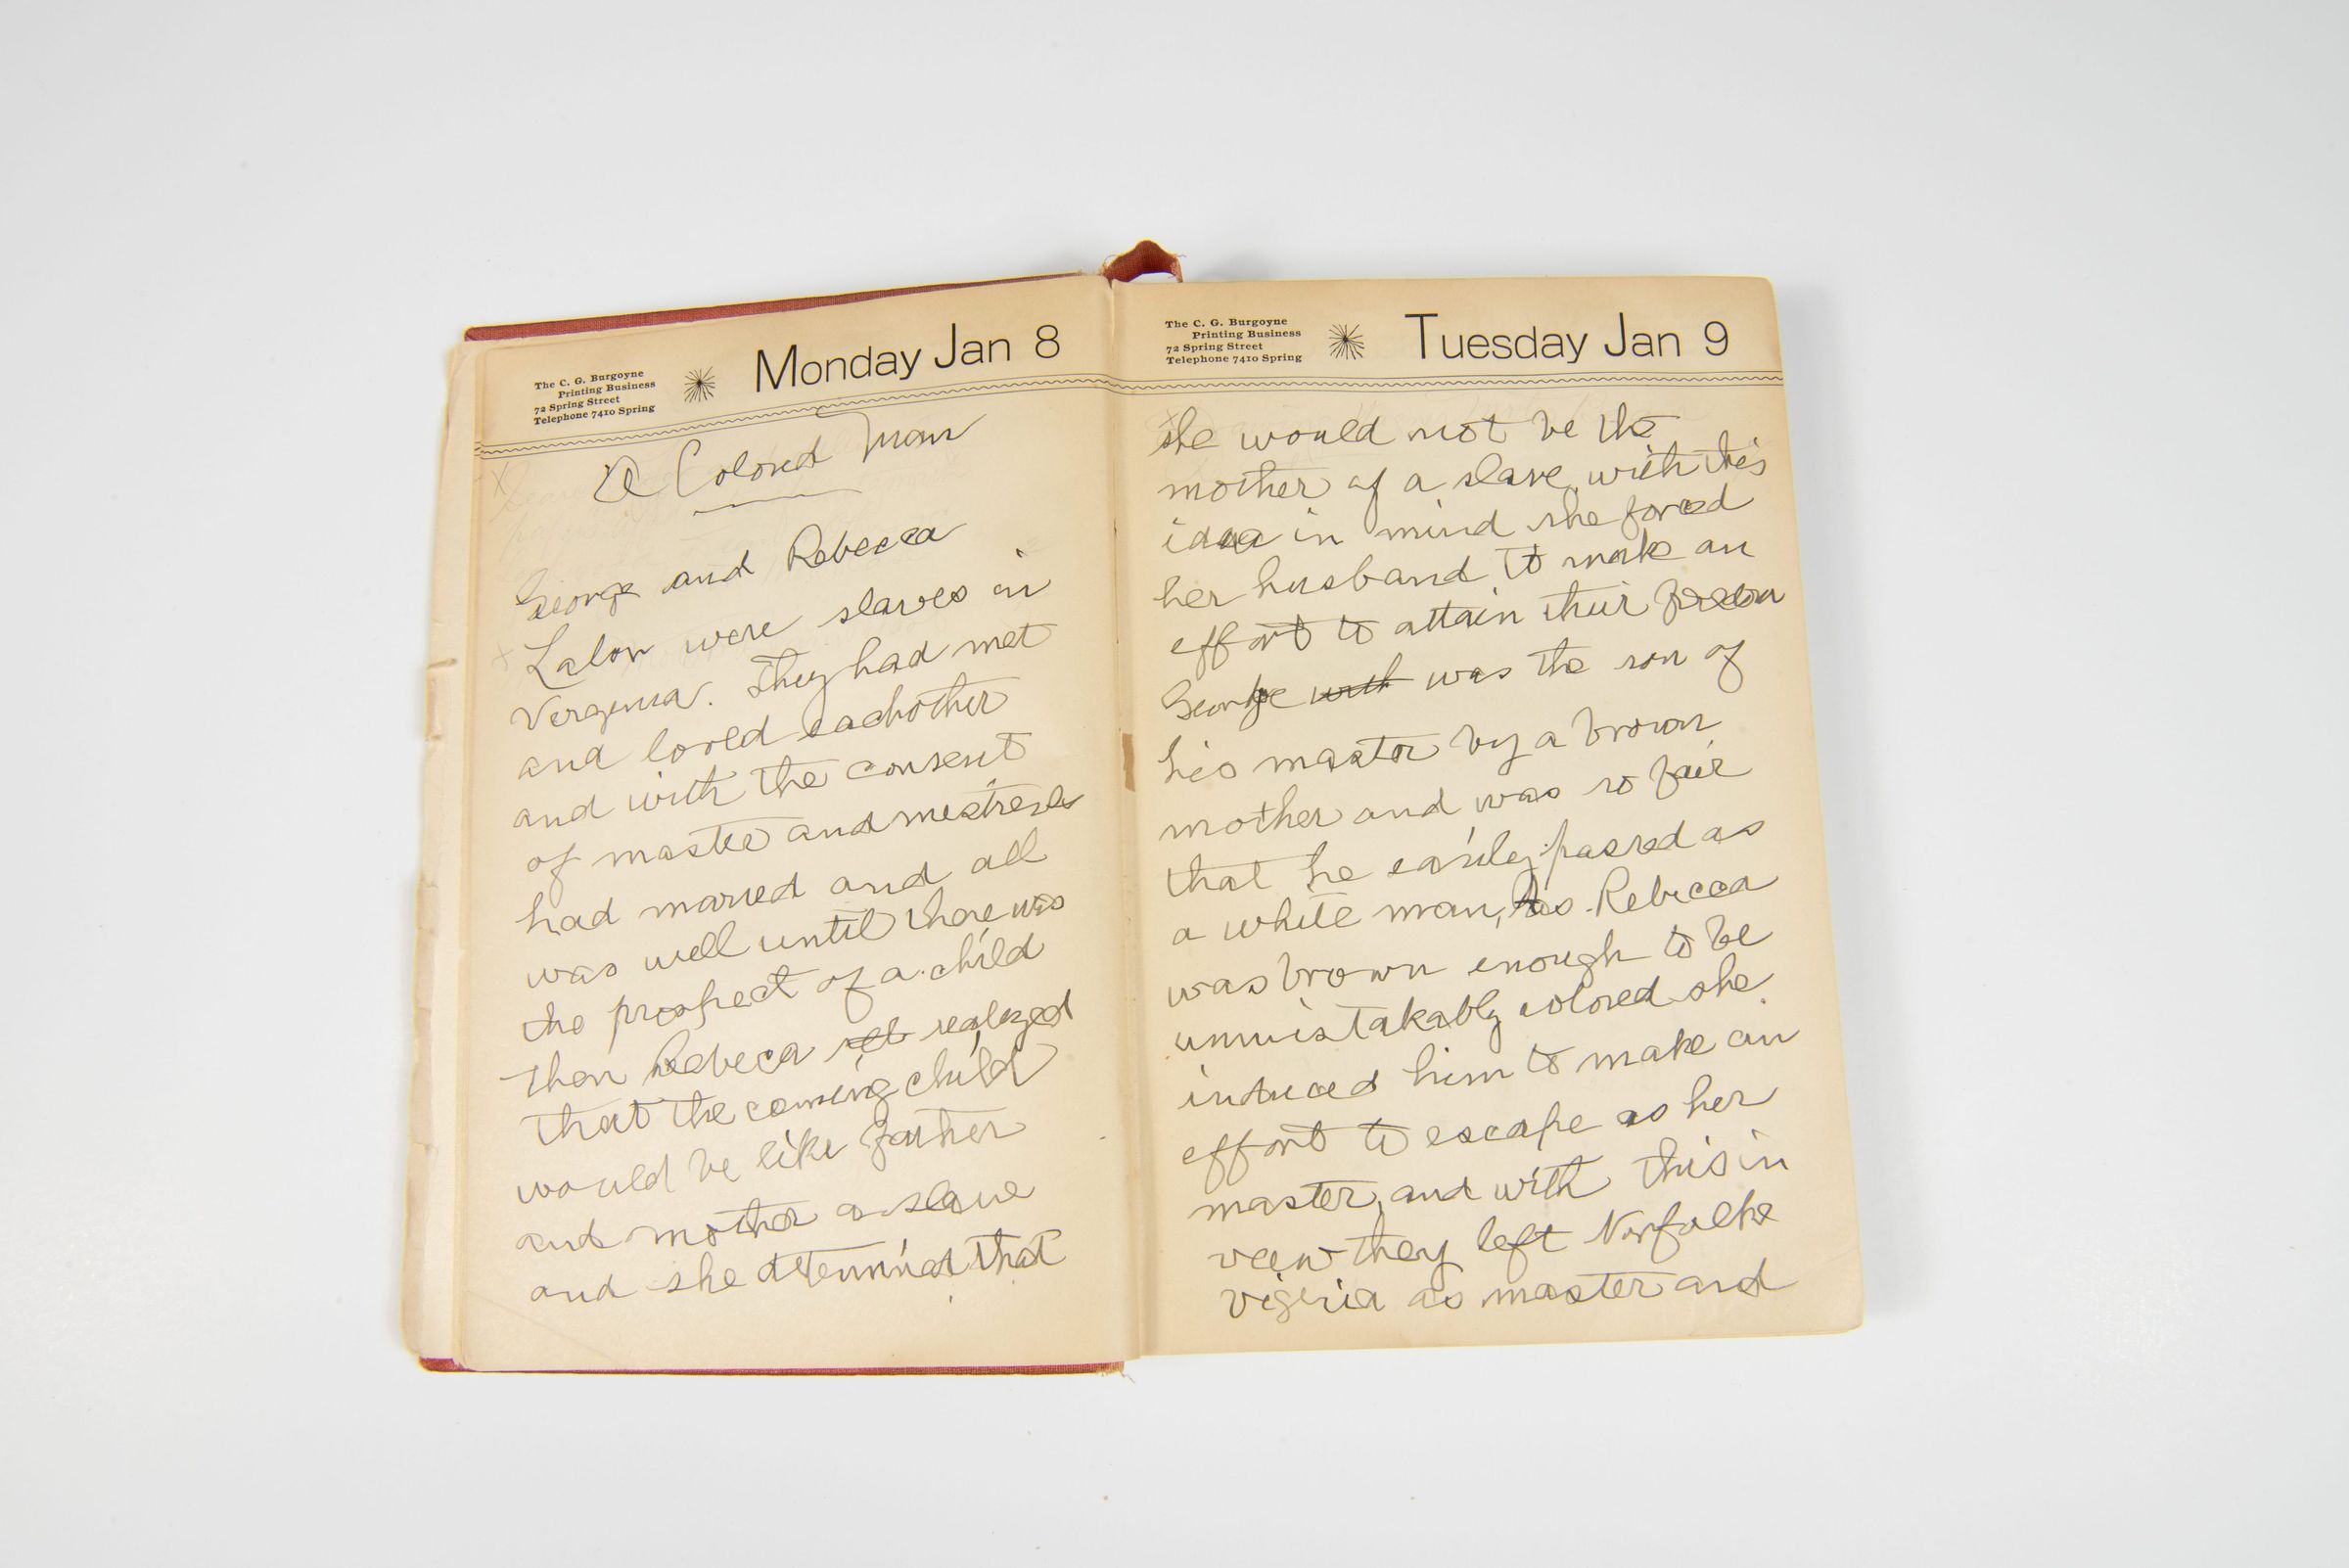 The C. G. Burgoyne
Printing Business
72 Spring Street
Telephone 7410 Spring
Monday Jan 8
A Colored Man
George and Rebecca
Latimer were slaves in
Verginia. They had met
and loved eachother
and with the consent
of master and mistress
had maried and all
was well until there was
the prospect of a child
then Rebeca realized
that the coming child
would be like father
and mother a slave
and she determined that
The C. G. Burgoyne
Printing Business
72 Spring Street
Telephone 7410 Spring
Tuesday Jan 9
she would not be the
mother of a slave, with this
idea in mind she forced
her husband to make an
effort to attain their freedom
George with was the son of
his master by a brown
mother and was so fair
that he easily passed as
a white man, as Rebecca
was brown enough to be
unmistakably colored she
induced him to make an
effort to escape as her
master, and with this in
veiw they left Norfolke
Viginia as master and